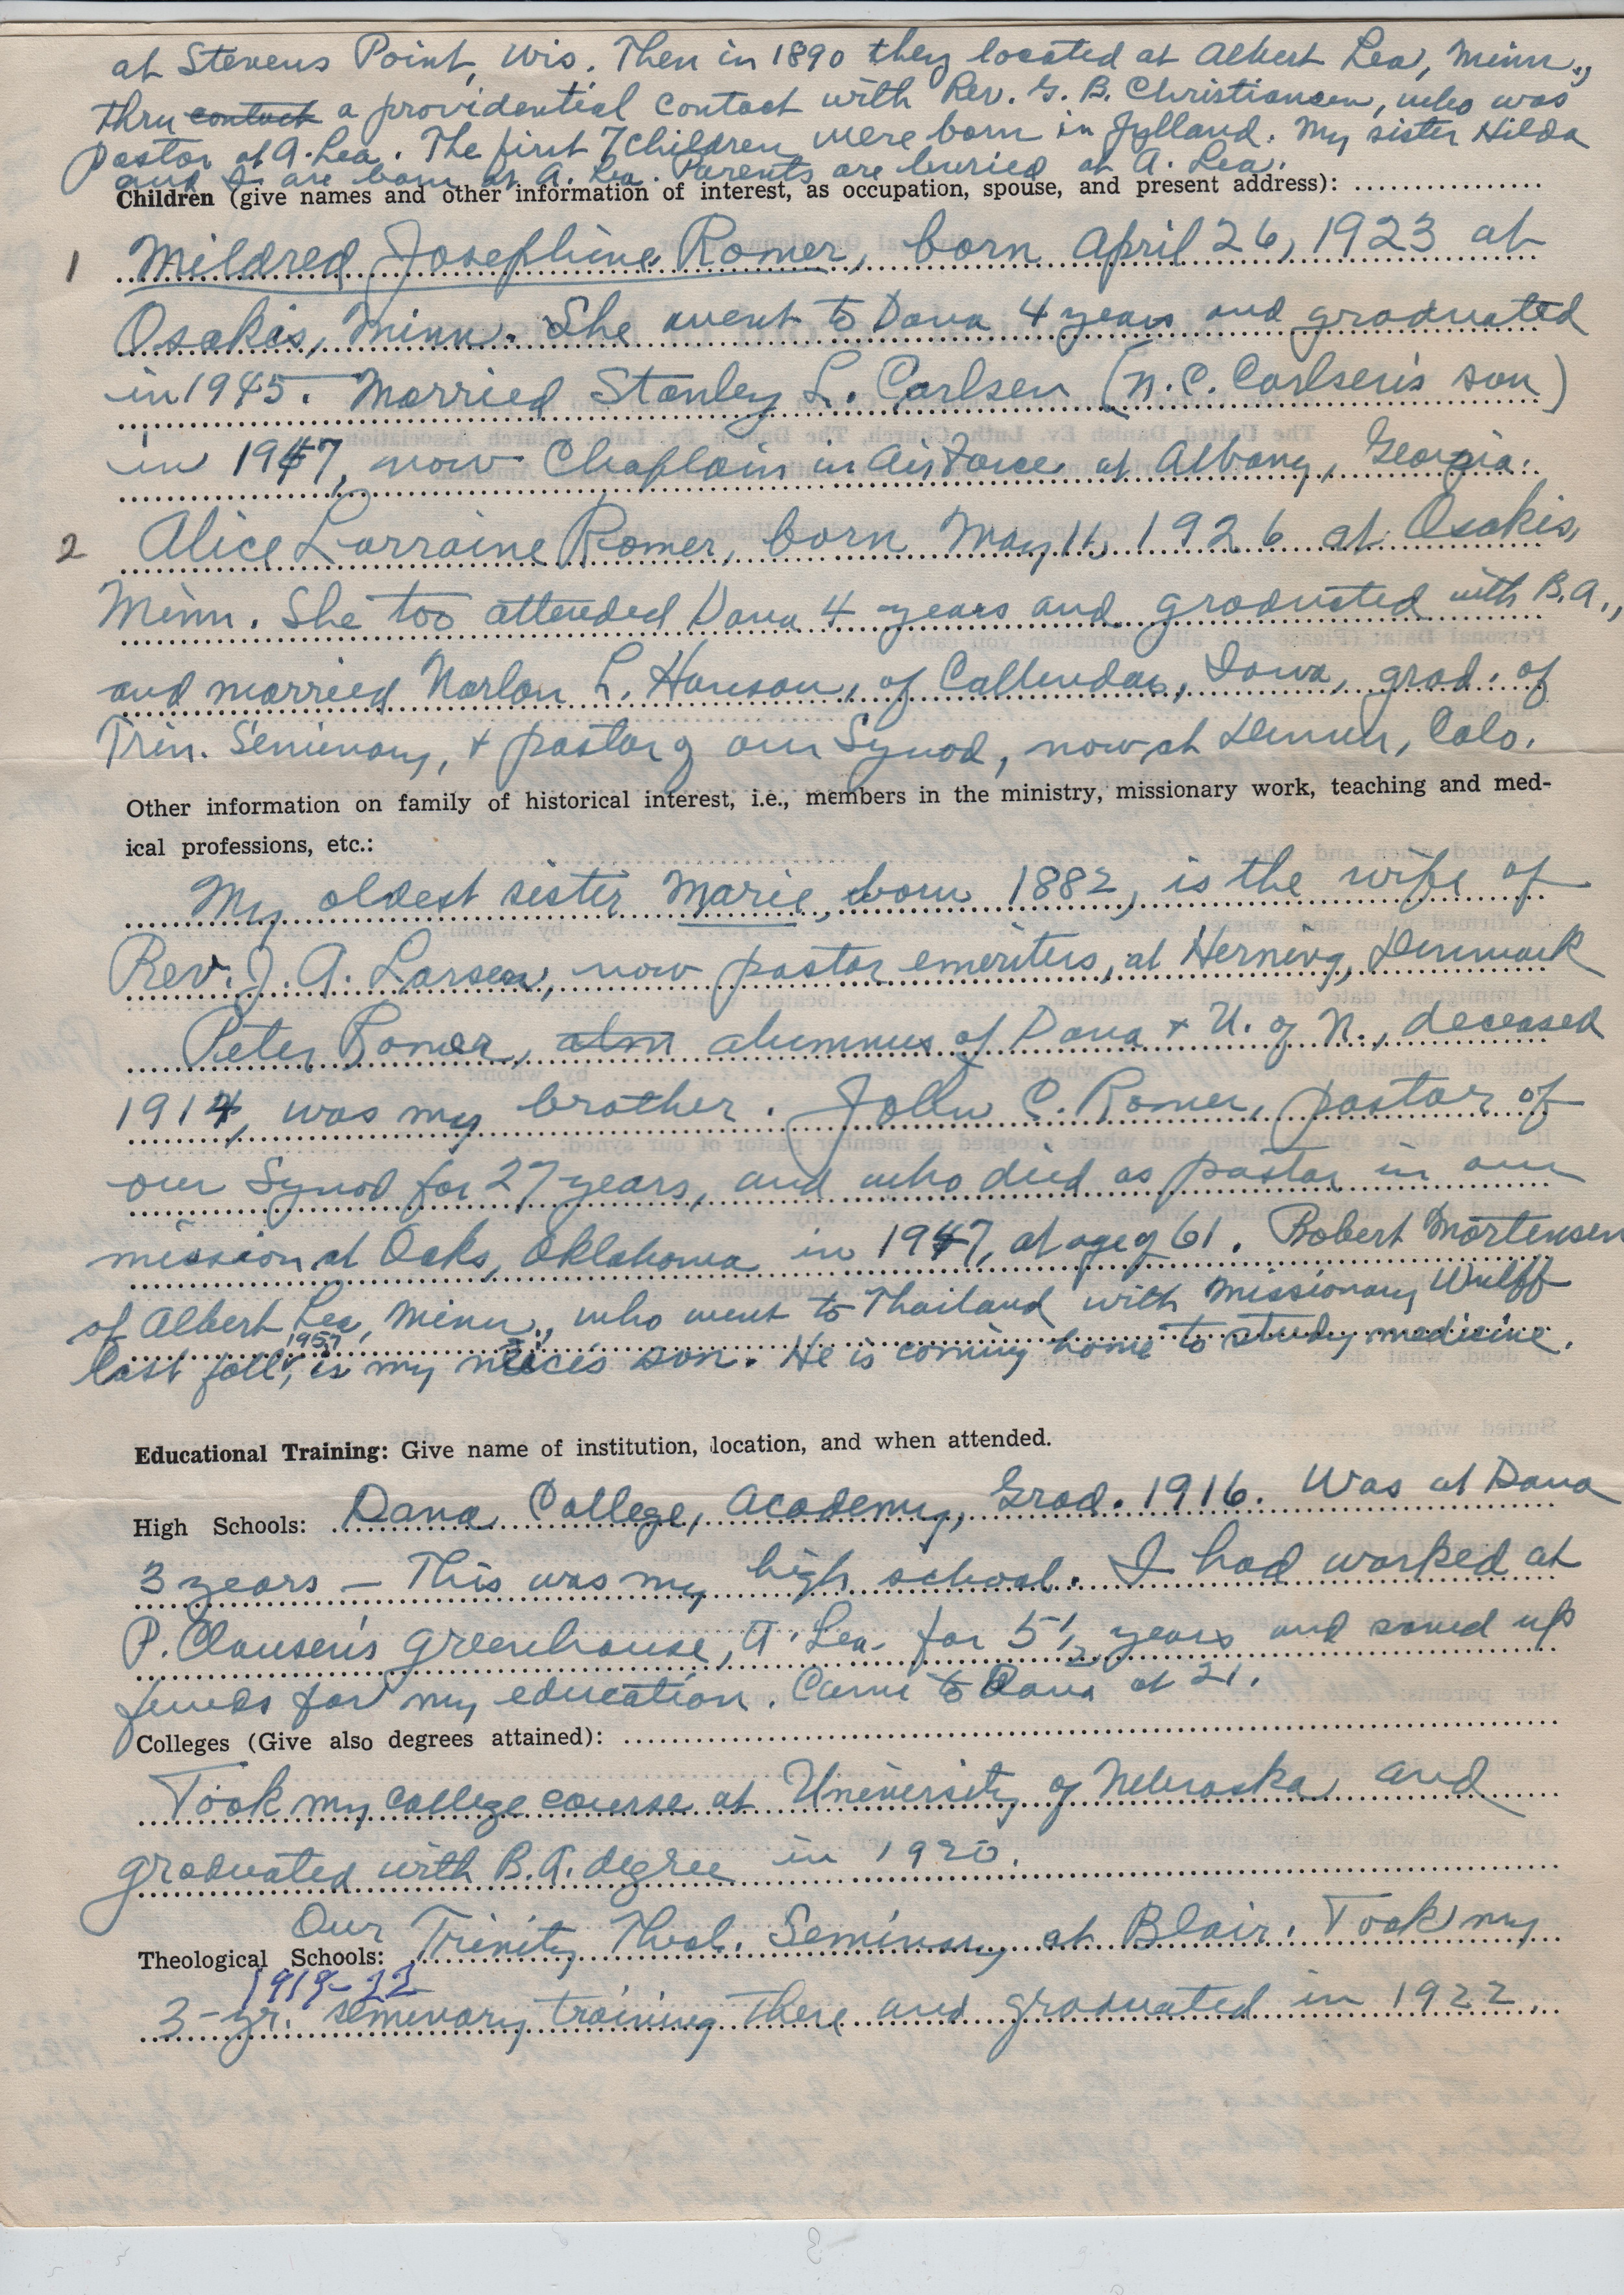 at Stevens Point, Wis. Then in 1890 they located at Albert Lea, Minn.,
thru contact a providential contact with Rev. G. B. Christiansen, who was
Pastor at A. Lea. The first 7 children were born in Jylland. My sister Hilda
and I are born at A. Lea. Parents are buried at A. Lea.
Children (give names and other information of interest, as occupation, spouse, and present address):
1 Mildred Josephine Romer, born April 26, 1923 at
Osakis, Minn. She went to Dana 4 years and graduated
in 1945. Married Stanley L. Carlsen (N. C. Carlsen's son)
in 1947, now Chaplain in Air Force at Albany, Georgia.
2 Alice Lorraine Romer, born May 11, 1926 at Osakis,
Minn. She too attended Dana 4 years and graduated with B.A.,
and married Harlon L. Hanson, of Callendar, Iowa, grad. of
Trin. Seminary, + pastor of our Synod, now at Denver, Colo.
Other information on family of historical interest, i.e., members in the ministry, missionary work, teaching and med-
ical professions, etc.:
My oldest sister Marie, born 1882, is the wife of
Rev. J. A. Larsen, now pastor emeritus, at Herning, Denmark
Peter Romer, alumnus of Dana + U. of N., deceased
1914, was my brother. John C. Romer, pastor of
our Synod for 27 years, and who died as pastor in our
mission at Oaks, Oklahoma in 1947, at age of 61. Robert Mortensen
of Albert Lea, Minn., who went to Thailand with Missionary Wulff
last fall, 1957 is my niece's son. He is coming home to study medicine.
Educational Training: Give name of institution, location, and when attended.
High Schools: Dana College, Academy, Grad. 1916. Was at Dana
3 years – This was my high school. I had worked at
P. Clausen's greenhouse, A. Lea for 5 1/2 years and saved up
funds for my education. Came to Dana at 21.
Colleges (Give also degrees attained):
Took my college course at University of Nebraska and
graduated with B.A. degree in 1920.
Theological Schools: Our Trinity Theol. Seminary at Blair. Took my
1919-22
3-yr. seminary training there and graduated in 1922.